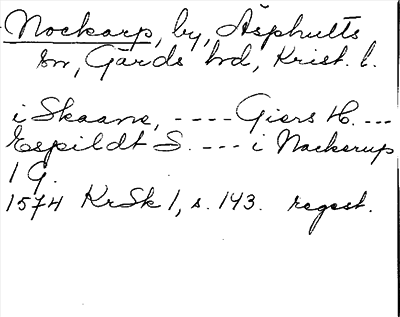 Nockarp, by, Äsphults
sn, Gärds hd, Krist. l.
i Skaane, ---- Giers H. ---
Espildt S. --- i Nackerup
1 G.
1574 KrSk 1, s. 143. regest.